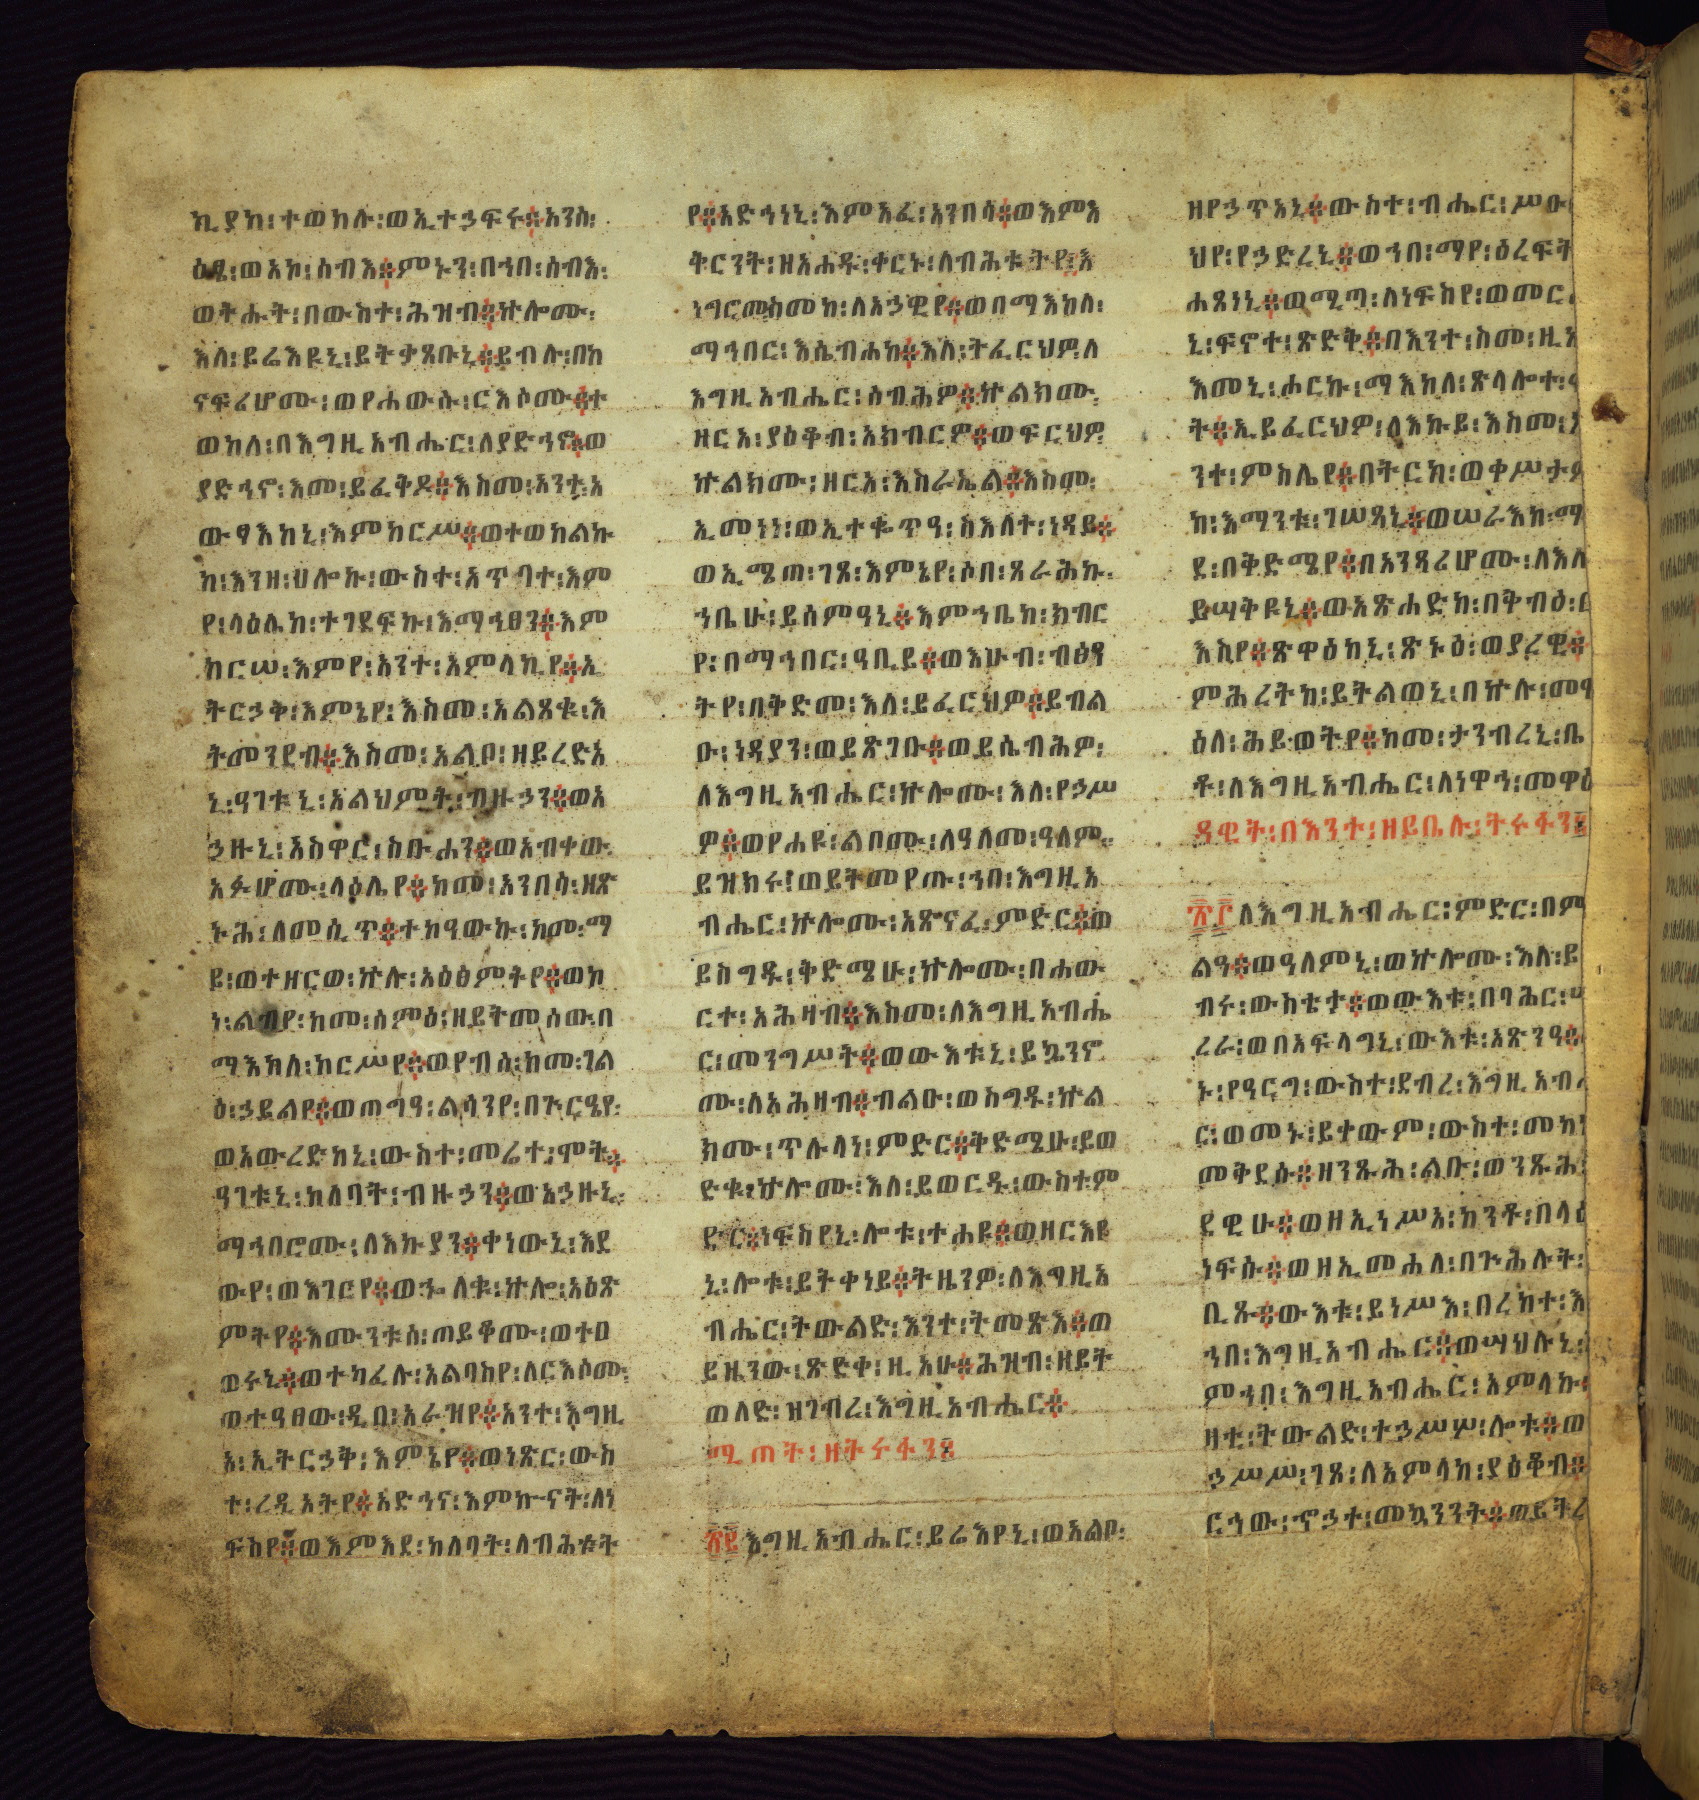 ኪያከ፡ተወከሉ፡ወኢተኃፍሩ፨አንሰ፡
ዕፄ፡ወአኮ፡ሰብእ፨ምኑን፡በኀበ፡ሰብእ፡
ወትሑት፡በውስተ፡ሕዝብ፨ኵሎሙ፡
እለ፡ይሬእዩኒ፡ይትቃጸቡኒ፨ይብሉ፡በከ
ናፍሪሆሙ፡ወየሐውሱ፡ርእሶሙ፨ተ
ወከለ፡በእግዚአብሔር፡ለያድኅኖ፨ወ
ያድኅኖ፡እመ፡ይፈቅዶ፨እስመ፡አንተ፡አ
ውፃእከኒ፡እምከርሥ፨ወተወከልኩ
ከ፡እንዘ፡ሀሎኩ፡ውስተ፡አጥባተ፡እም
የ፡ላዕሌከ፡ተገደፍኩ፡እማኅፀን፨እም
ከርሠ፡እምየ፡አንተ፡አምላኪየ፨ኢ
ትርኃቅ፡እምኔየ፡እስመ፡አልጸቁ፡እ
ትመንደብ፨እስመ፡አልቦ፡ዘይረድአ
ኒ፡ዓገቱኒ፡አልህምት፡ብዙኃን፨ወአ
ኃዙኒ፡አስዋር፡ስቡሐን፨ወአብቀው
አፉሆሙ፡ላዕሌየ፨ከመ፡አንበሳ፡ዘጽ
ኑሕ፡ለመሲጥ፨ተከዓውኩ፡ከመ፡ማ
ይ፡ወተዘርወ፡ኵሉ፡አዕፅምትየ፨ወኮ
ነ፡ልብየ፡ከመ፡ሰምዕ፡ዘይትመሰው፡በ
ማእከለ፡ከርሥየ፨ወየብሰ፡ከመ፡ገል
ዕ፡ኃይልየ፨ወጠግዓ፡ልሳንየ፡በጕርዔየ፡
ወአውረድከኒ፡ውስተ፡መሬተ፡ሞት፨
ዓገቱኒ፡ከለባት፡ብዙኃን፨ወአኃዙኒ፡
ማኅበሮሙ፡ለእኩያን፨ቀነውኒ፡እደ
ውየ፡ወእገርየ፨ወኈለቁ፡ኵሎ፡አዕጽ
ምትየ፨እሙንቱሰ፡ጠይቆሙ፡ወተዐ
ወሩኒ፨ወተካፈሉ፡አልባስየ፡ለርእሶሙ፡
ወተዓፀው፡ዲበ፡አራዝየ፨አንተ፡እግዚ
አ፡ኢትርኃቅ፡እምኔየ፨ወነጽር፡ውስ
ተ፡ረዲአትየ፨አድኅና፡እምኩናት፡ለነ
ፍስየ፨ወእምእደ፡ከለባት፡ለብሕቱት
የ፨አድኀነኒ፡እምአፈ፡አንበሳ፨ወእምእ
ቅርንት፡ዘአሐዱ፡ቀርኑ፡ለብሕቱትየ፡እ
ነግሮሙስመከ፡ለአኃዊየ፨ወበማእከለ፡
ማኅበር፡እሴብሐከ፨እለ፡ትፈርህዎ፡ለ
እግዚአብሔር፡ሰብሕዎ፨ኵልክሙ፡
ዘርአ፡ያዕቆብ፡አክብርዎ፨ወፍርህዎ
ኵልክሙ፡ዘርአ፡እስራኤል፨እስመ፡
ኢመነነ፡ወኢተቈጥዓ፡ስእለተ፡ነዳይ፨
ወኢሜጠ፡ገጸ፡እምኔየ፡ሶበ፡ጸራሕኩ፡
ኀቤሁ፡ይሰምዓኒ፨እምኀቤከ፡ክብር
የ፡በማኅበር፡ዓቢይ፨ወእሁብ፡ብፅዓ
ትየ፡በቅድመ፡እለ፡ይፈርህዎ፨ይብል
ዑ፡ነዳያን፡ወይጽገቡ፨ወይሴብሕዎ፡
ለእግዚአብሔር፡ኵሎሙ፡እለ፡የኃሥ
ዎ፨ወየሐዩ፡ልቦሙ፡ለዓለመ፡ዓለም፨
ይዝክሩ፡ወይትመየጡ፡ኀበ፡እግዚአ
ብሔር፡ኵሎሙ፡አጽናፈ፡ምድር፨ወ
ይስግዱ፡ቅድሜሁ፡ኵሎሙ፡በሐው
ርተ፡አሕዛብ፨እስመ፡ለእግዚአብሔ
ር፡መንግሥት፨ወውእቱኒ፡ይኴንኖ
ሙ፡ለአሕዛብ፨ብልዑ፡ወስግዱ፡ኵል
ክሙ፡ጥሉላነ፡ምድር፨ቅድሜሁ፡ይወ
ድቁ፡ኵሎሙ፡እለ፡ይወርዱ፡ውስተ፡ም
ድር፨ነፍስየኒ፡ሎቱ፡ተሐዩ፨ወዘርእየ
ኒ፡ሎቱ፡ይትቀነይ፨ትዜንዎ፡ለእግዚአ
ብሔር፡ትውልድ፡እንተ፡ትመጽእ፨ወ
ይዜንው፡ጽድቀ፡ዚአሁ፨ሕዝብ፡ዘይት
ወለድ፡ዝገብረ፡እግዚአብሔር፨
ሚጠት፡ዘትሩፋን፤
፳፪ እግዚአብሔር፡ይሬእየኒ፡ወአልቦ፡
ዘየኃጥአኒ፨ውስተ፡ብሔር፡ሥዑ
ህየ፡የኃድረኒ፨ወኀበ፡ማየ፡ዕረፍት
ሐጸነኒ፨ወሚጣ፡ለነፍስየ፡ወመር
ኒ፡ፍኖተ፡ጽድቅ፨በእንተ፡ስመ፡ዚአ
እመኒ፡ሖርኩ፡ማእከለ፡ጽላሎተ፡
ት፨ኢይፈርህዎ፡ለእኩይ፡እስመ፡
ንተ፡ምስሌየ፨በትርከ፡ወቀሥታም
ከ፡እማንቱ፡ገሠጻኒ፨ወሠራእከ፡ማ
ደ፡በቅድሜየ፨በአንጻሪሆሙ፡ለእለ
ይሣቅዩኒ፨ወአጽሐድከ፡በቅብዕ፡ር
እስየ፨ጽዋዕከኒ፡ጽኑዕ፡ወያረዊ፨
ምሕረትከ፡ይትልወኒ፡በኵሉ፡መዋ
ዕለ፡ሕይወትየ፨ከመ፡ታንብረኒ፡ቤ
ቶ፡ለእግዚአብሔር፡ለነዋኅ፡መዋዕ
ዳዊት፡በእንተ፡ዘይቤሉ፡ትሩፋን፤
፳፫ ለእግዚአብሔር፡ምድር፡በም
ልዓ፨ወዓለምኒ፡ወኵሎሙ፡እለ፡ይ
ብሩ፡ውስቴታ፨ወውእቱ፡በባሕር፡
ረራ፡ወበአፍላግኒ፡ውእቱ፡አጽንዓ፨
ኑ፡የዓርግ፡ውስተ፡ደብረ፡እግዚአብ
ር፡ወመኑ፡ይቀውም፡ውስተ፡መከነ
መቅደሱ፨ዘንጹሕ፡ልቡ፡ወንጹሕ፡
ደዊሁ፨ወዘኢነሥአ፡ከንቶ፡በላዕ
ነፍሱ፨ወዘኢመሐለ፡በጕሕሉት፡
ቢጹ፨ውእቱ፡ይነሥእ፡በረከተ፡እ
ኀበ፡እግዚአብሔር፨ወሣህሉኒ፡
ምኀበ፡እግዚአብሔር፡አምላኩ፡
ዛቲ፡ትውልድ፡ተኃሥሦ፡ሎቱ፨ወ
ኃሥሥ፡ገጸ፡ለአምላከ፡ያዕቆብ፨
ርኀው፡ኖኃተ፡መኳንንት፨ወይትረ